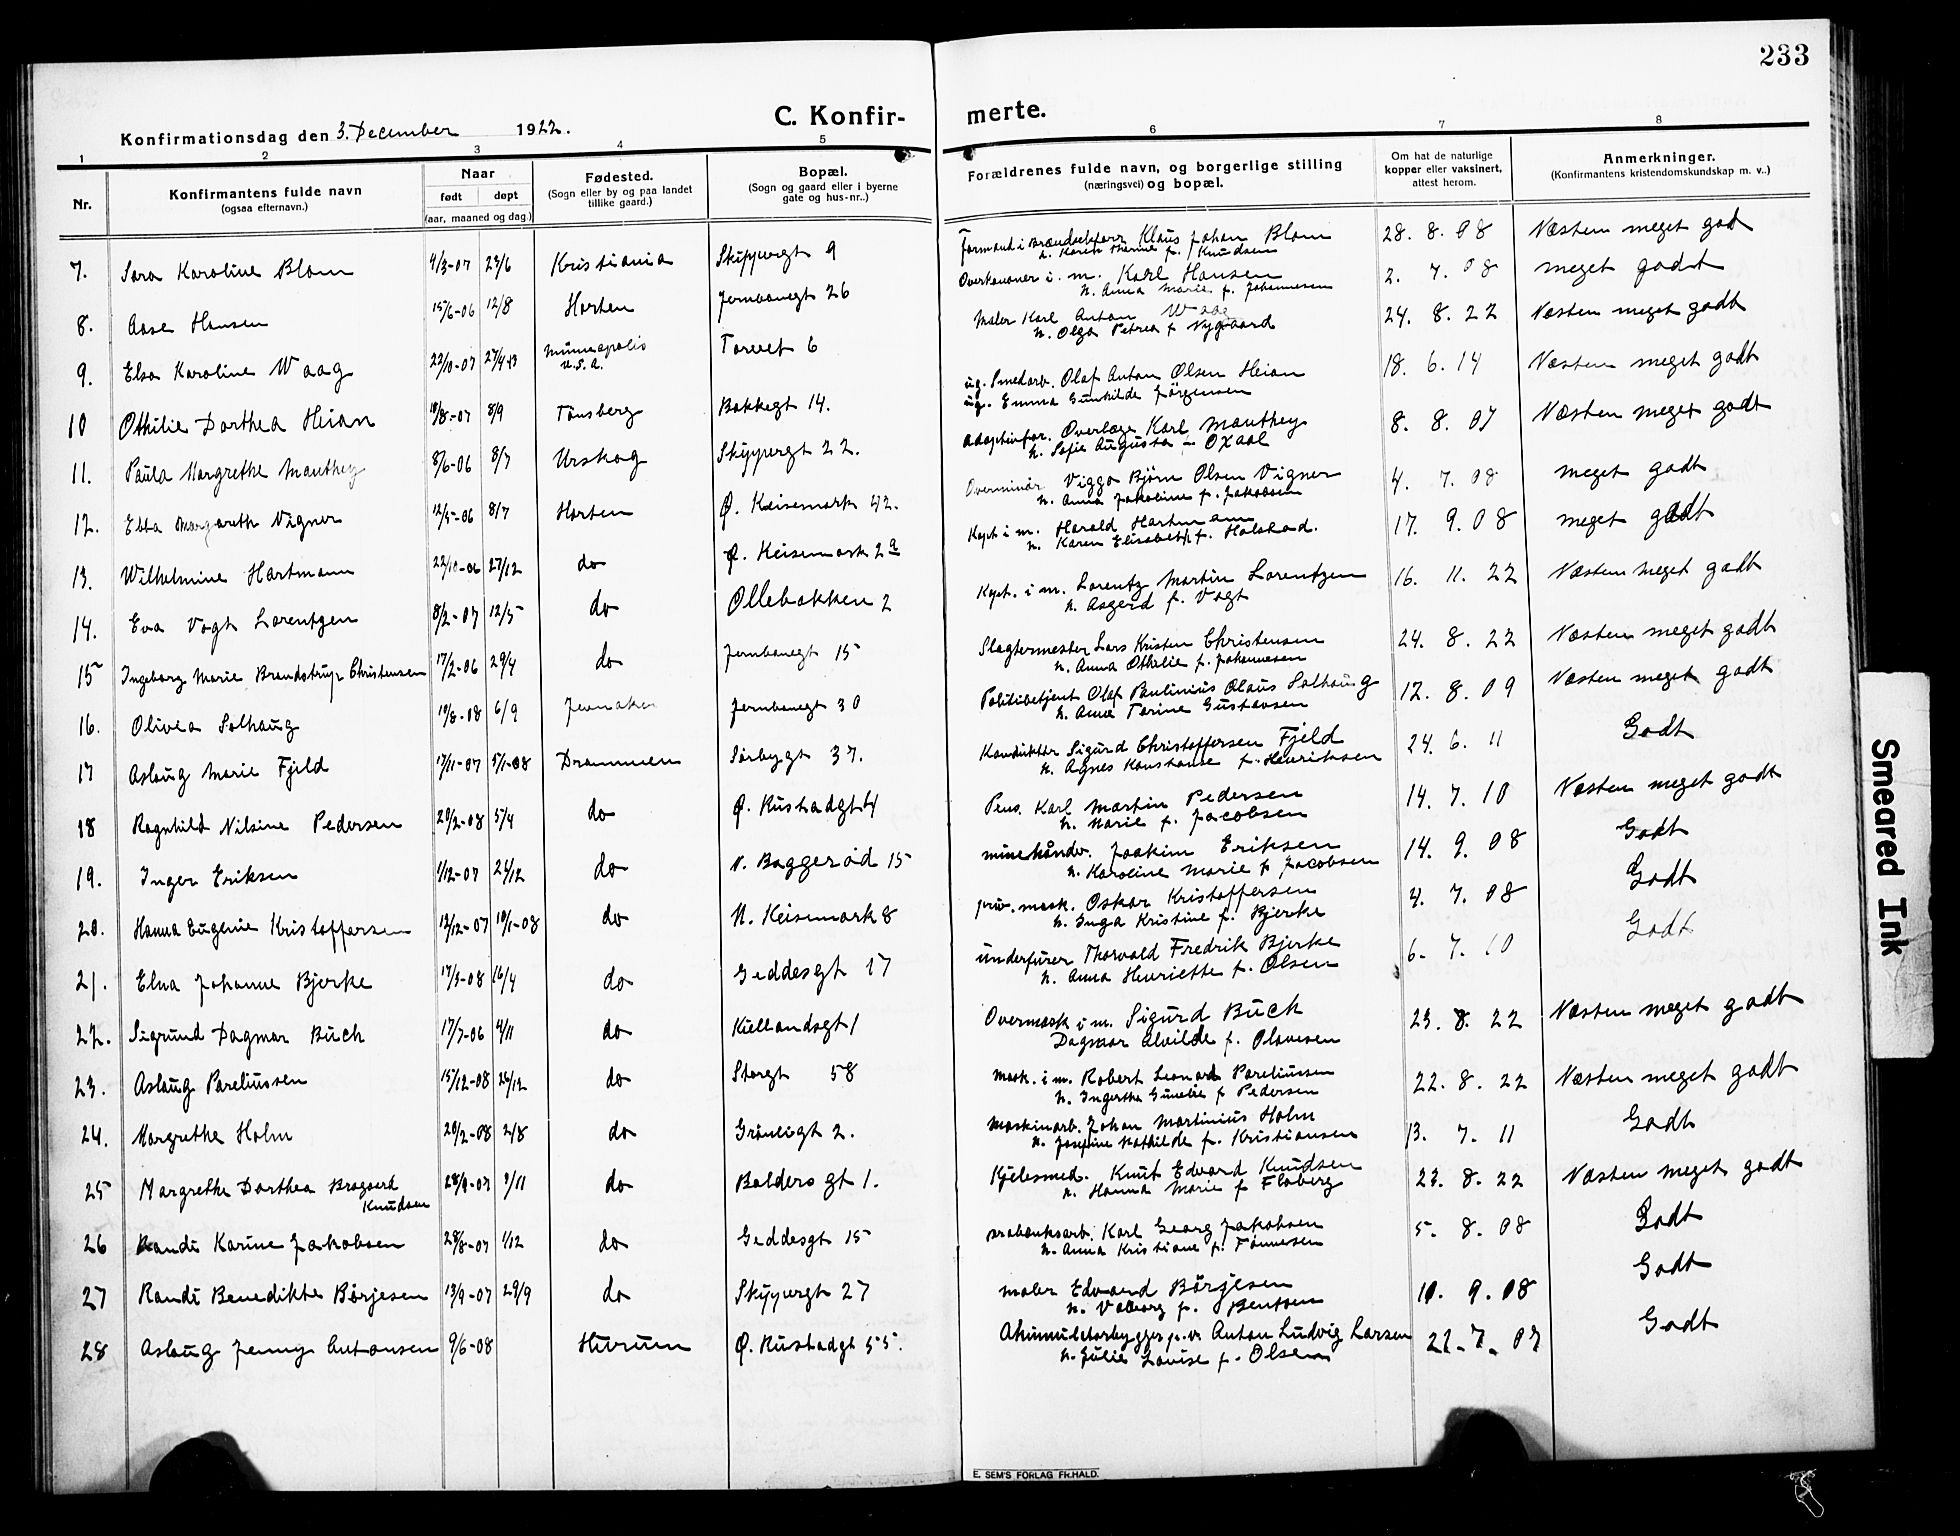 233
C. Konfirmerte.
Konfirmationsdag den 3. December 1922.
1 2 3 4 5 6 7 8
Nr.
Konfirmantens fulde navn
(ogsaa efternavn.)
Naar
født døpt
(aar, maaned og dag.)
Fødested.
(Sogn eller by og paa landet
tillike gaard.)
Bopæl.
(Sogn og gaard eller i byerne
gate og hus-nr..)
Forældrenes fulde navn, og borgerlige stilling
(næringsvei) og bopæl.
Om hat de naturlige
kopper eller vaksinert,
attest herom.
Anmerkninger.
(Konfirmantens kristendomskundskap m. v..)
7. Sara Karoline Blom 4/3-07 23/6 Kristiania Skippergt 9 Klaus Johan Blom 28. 8. 08 Næsten meget god
n. Karen f. Knudsen
8. Aase Hansen 15/6-06 12/8 Horten Jernbanegt 26 Overkanoner i. m. Karl Hansen 2. 7. 08 meget godt
n. Anna Marie f. Johannesen
9. Elsa Karoline Waag 22/10-07 27/4-13 Minneapolis U.S.A. Torvet 6 Maler Karl Anton Waag 24. 8. 22 Næsten meget godt
n. Olga Petrea f Nygaard
10 Othilie Dorthea Heian 18/8-07 8/9 Tønsberg Bakkegt 14. ug. Smedarb. Olaf Anton Olsen Heian 18. 6. 14 Næsten meget godt
ug. Emma Gunhilde Jørgensen
11. Paula Margrethe Manthey 8/6-06 8/7 Urskog Skippergt 22. Adoptivfor. Overlæge Karl Manthey 8. 8. 07 Næsten meget godt
n. Sofie Augusta f. Oxaal
12. Ebba Margareth Vigner 12/5-06 8/7 Horten Ø. Keisemark 42. Overminør Viggo Bjørn Olsen Vigner 4. 7. 08 meget godt
n. Anna Jakobine f. Jakobsen
13. Wilhelmine Hartmann 22/10-06 27/12 do Ø. Keisemark 2a Kapt i m. Harald Hartmann 17. 9. 08 meget godt
n. Karen Elisabeth f. Holstad.
14. Eva Vogt Lorentzen 8/2-07 12/5 do Ollebakken 2 Kapt. i m. Lorentz Martin Lorentzen 16. 11. 22 Næsten meget godt
n. Asgerd f. Vogt
15 Ingeborg Marie Brandstrup Christensen 17/2-06 29/4 do Jernbanegt 15 Slagtermester Lars Kristen Christensen 24. 8. 22 Næsten meget godt
n. Anna Othilie f. Johannesen
16. Olivea Solhaug 10/8-08 6/9 Jevnaker Jernbanegt 30 Politibetjent Olaf Paulinius Olaus Solhaug 12. 8. 09 Næsten meget godt
n. Anna Torine Gustavsen
17 Aslaug Marie Fjeld 17/11-07 5/1-08 Drammen Sørbygt 37. Konduktør Sigurd Christoffersen Fjeld 24. 6. 11 Godt
n. Agnes Konstanse f. Henriksen
18 Ragnhild Nilsine Pedersen 20/2-08 5/4 do Ø. Rustadgt 4 Pens. Karl Martin Pedersen 14. 7. 10 Næsten meget godt
n. Marie f. Jacobsen
19. Inger Eriksen 1/12-07 24/12 do N. Baggerød 15 minehåndv. Joakim Eriksen 14. 9. 08 Godt
n. Karoline Marie f Jacobsen
20. Hanna Eugenie Kristoffersen 12/12-07 19/1-08 do N. Keisemark 8 priv. mask. Oskar Kristoffersen 4. 7. 08 Godt
n. Inga Kristine f. Bjerke
21. Elna Johanne Bjerke 17/3-08 16/4 do Geddesgt 17 underfurer Thorvald Fredrik Bjerke 6. 7. 10 Godt
n. Anna Henriette f. Olsen
22. Sigrund Dagmar Buch 17/7-06 4/11 do Kiellandsgt 1 Overmask i m. Sigurd Buch 23. 8. 22 Næsten meget godt
Dagmar Alvilde f. Olavesen
23. Aslaug Pareliussen 15/12-08 26/12 do Storgt 58 Mask. i m. Robert Leonard Pareliussen 22. 8. 22 Næsten meget godt
f Pedersen
24. Margrethe Holm 20/2-08 2/8 do Grønligt 2. Maskinarb. Johan Martinius Holm 13. 7. 11 Godt
n. Josefine Mathilde f. Kristiansen
25 Margrethe Dorthea Bragaard Knudsen 28/9-07 9/11 do Balders gt 1. Kjelesmed. Knut Edvard Knudsen 23. 8. 22 Næsten meget godt
n. Hanna Marie f Floberg
26 Randi Karine Jakobsen 28/8-07 1/12 do Geddesgt 15 Karl Georg Jakobsen 5. 8. 08 Godt
n. Anna Kristiane f. Tønnesen
27 Randi Benedikte Børjesen 13/9-07 29/9 do Skippergt 27 maler Edvard Børjesen 10. 9. 08 Godt
n. Valborg f. Bentsen
28 Aslaug Jenny Antonsen 9/6-08 Hurum Ø. Rustadgt 55. Akumulatorbygger p.v. Anton Ludvig Larsen 22. 7. 07 Godt
n. Julie Lovise f. Olsen
E. SEM'S FORLAG FR.HALD.
Smeared Ink